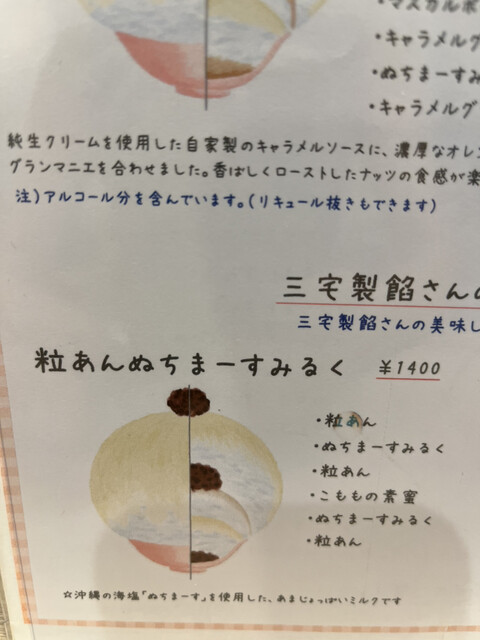 ・マスカルポ
・キャラメルグ
・ぬちまーすみ
・キャラメルグ
純生クリームを使用した自家製のキャラメルソースに、濃厚なオレン
グランマニエを合わせました。香ばしくローストしたナッツの食感が楽
注）アルコール分を含んでいます。（リキュール抜きもできます）
三宅製餡さんの
三宅製餡さんの美味し
粒あんぬちまーすみるく ¥1400
・粒あん
・ぬちまーすみるく
・粒あん
・こももの素蜜
・ぬちまーすみるく
・粒あん
☆沖縄の海塩「ぬちまーす」を使用した、あまじょっぱいミルクです